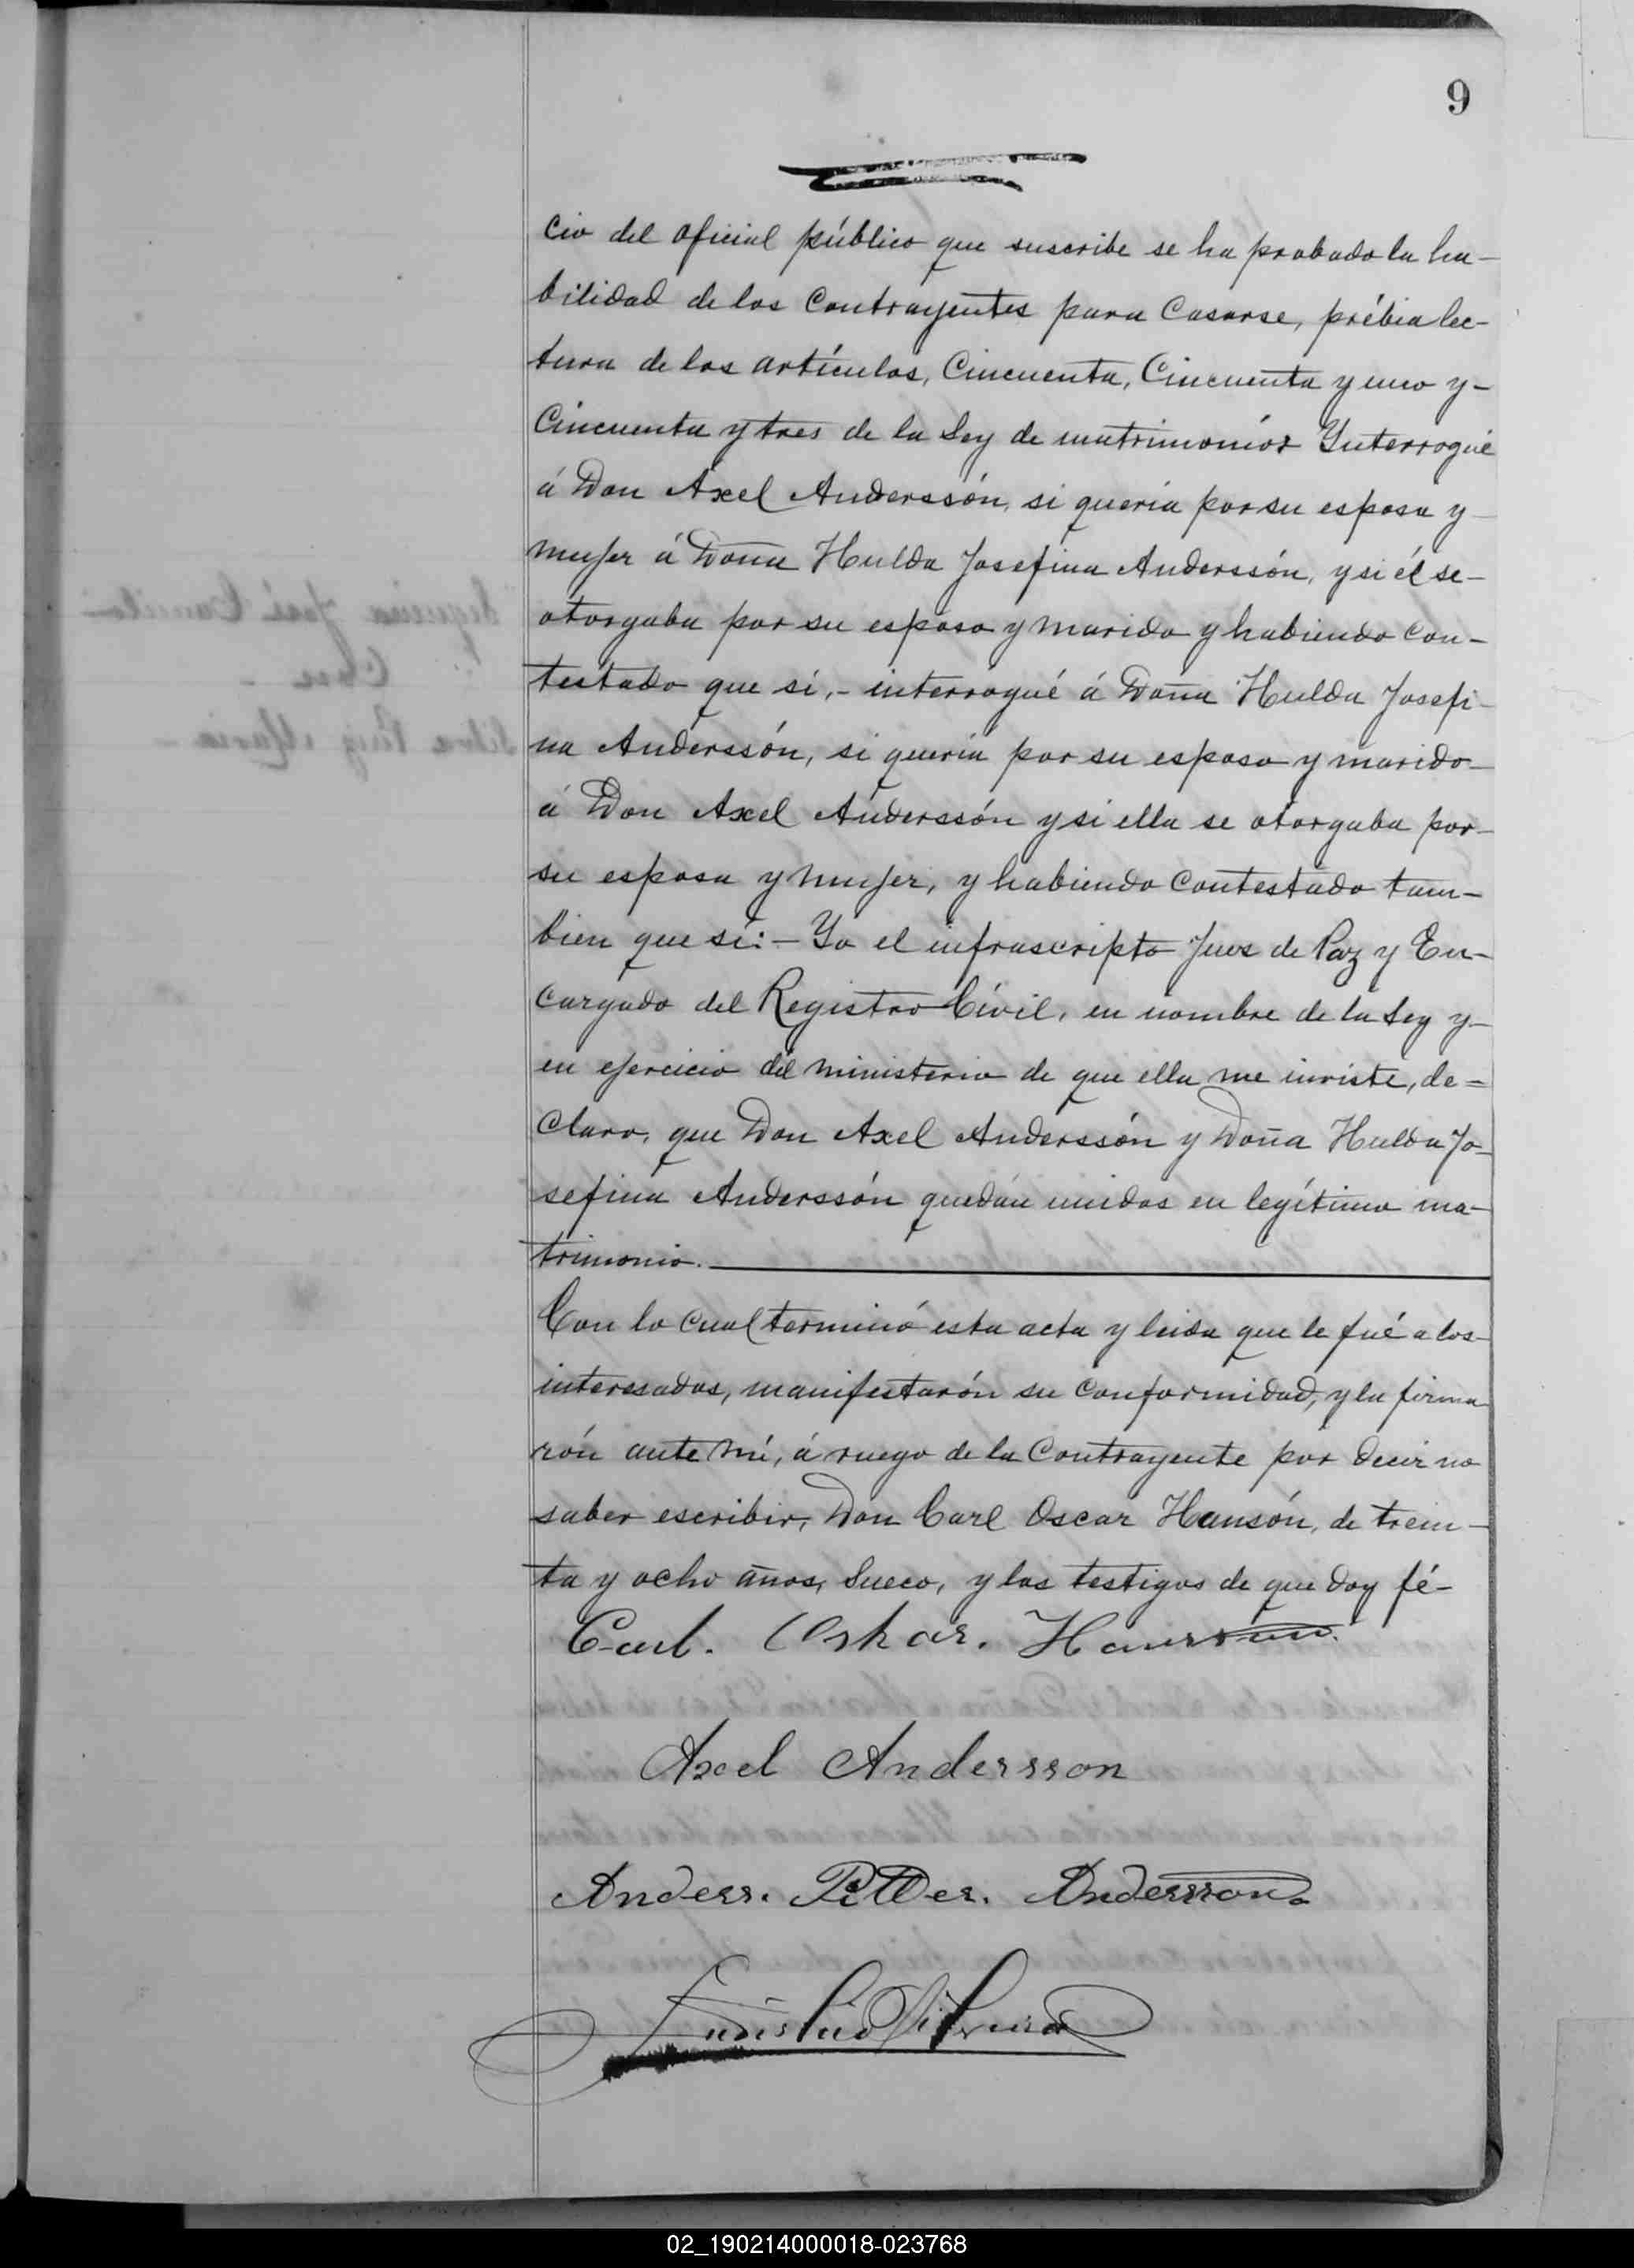 9
cio del oficial público que suscribe se ha probado la ha-
bilidad de los Contrayentes para Casarse, prébia lec-
tura de los artículos, Cincuenta, Cincuenta y uno y-
Cincuenta y tres de la Ley de matrimonios Ynterrogué
á Don Axel Anderssón, si quería por su esposa y-
mujer á Doña Hulda Josefina Anderssón, y si él se-
otorgaba por su esposo y marido y habiendo con-
testado que sí,- interrogué á Doña Hulda Josefi-
na Anderssón, si quería por su esposo y marido-
á Don Axel Anderssón y si ella se otorgaba por-
su esposa y mujer, y habiendo Contestado tam-
bien que sí:- Yo el infrascripto Jues de Paz y En-
cargado del Registro Cívil, en nombre de la Ley y-
en ejercicio del ministerio de que ella me inviste, de=
claro, que Don Axel Anderssón y Doña Hulda Jo-
sefina Anderssón quedán unidos en legítimo ma-
trimonio.
Con lo cual terminó esta acta y leida que le fué a los-
interesados, manifestarón su Conformidad, y la firma
rón ante mí, á ruego de la Contrayente por decir no
saber escribir, Don Carl Oscar Hansón, de trein-
ta y ocho años, Sueco, y los testigos de que doy fé-
Carl. Oskar. Hansson.
Axel Andersson
Anders. Pitter. Andersson.
02_190214000018-023768